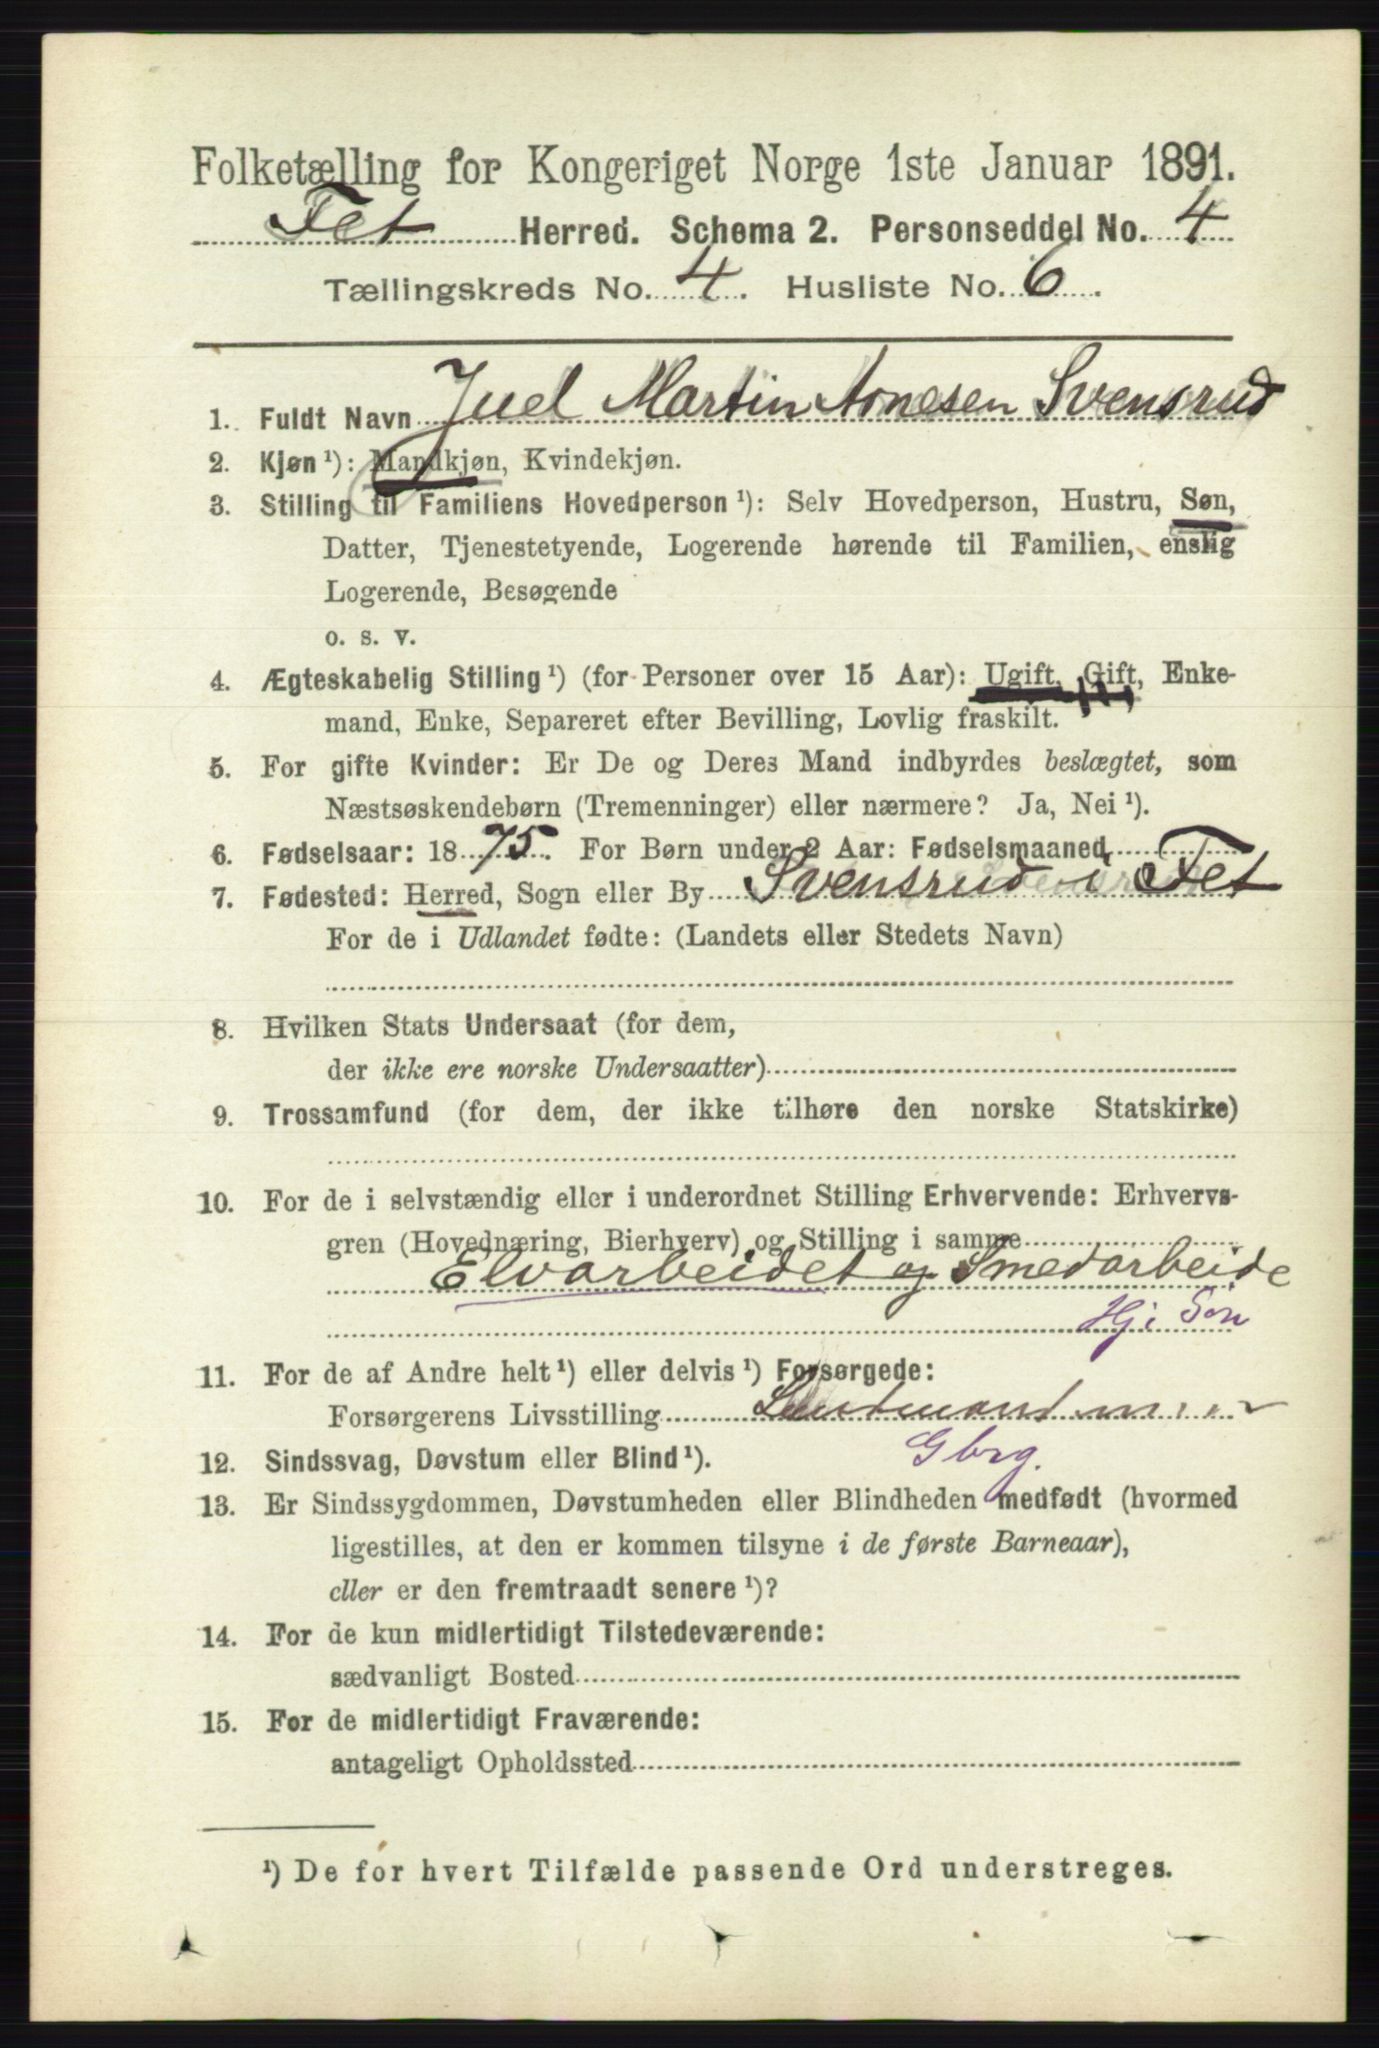 Folketælling for Kongeriget Norge 1ste Januar 1891.
Fet Herred. Schema 2. Personseddel No. 4
Tællingskreds No. 4. Husliste No. 6.
1. Fuldt Navn Juel Martin Arnesen Svensrud
2. Kjøn ¹): Mandkjøn, Kvindekjøn.
3. Stilling til Familiens Hovedperson ¹): Selv Hovedperson, Hustru, Søn,
Datter, Tjenestetyende, Logerende hørende til Familien, enslig
Logerende, Besøgende
o. s. v.
4. Ægteskabelig Stilling ¹) (for Personer over 15 Aar): Ugift, Gift, Enke-
mand, Enke, Separeret efter Bevilling, Lovlig fraskilt.
5. For gifte Kvinder: Er De og Deres Mand indbyrdes beslægtet, som
Næstsøskendebørn (Tremenninger) eller nærmere? Ja, Nei ¹).
6. Fødselsaar: 1875. For Børn under 2 Aar: Fødselsmaaned
7. Fødested: Herred, Sogn eller By Svensrud i Fet
For de i Udlandet fødte: (Landets eller Stedets Navn)
8. Hvilken Stats Undersaat (for dem,
der ikke ere norske Undersaatter)
9. Trossamfund (for dem, der ikke tilhøre den norske Statskirke)
10. For de i selvstændig eller i underordnet Stilling Erhvervende: Erhvervs-
gren (Hovednæring, Bierhverv) og Stilling i samme
Elvarbeidet og Smedarbeide
Hj. Søn
11. For de af Andre helt ¹) eller delvis ¹) Forsørgede:
Forsørgerens Livsstilling
Gbrg.
12. Sindssvag, Døvstum eller Blind ¹).
13. Er Sindssygdommen, Døvstumheden eller Blindheden medfødt (hvormed
ligestilles, at den er kommen tilsyne i de første Barneaar),
eller er den fremtraadt senere ¹)?
14. For de kun midlertidigt Tilstedeværende:
sædvanligt Bosted
15. For de midlertidigt Fraværende:
antageligt Opholdssted
¹) De for hvert Tilfælde passende Ord understreges.